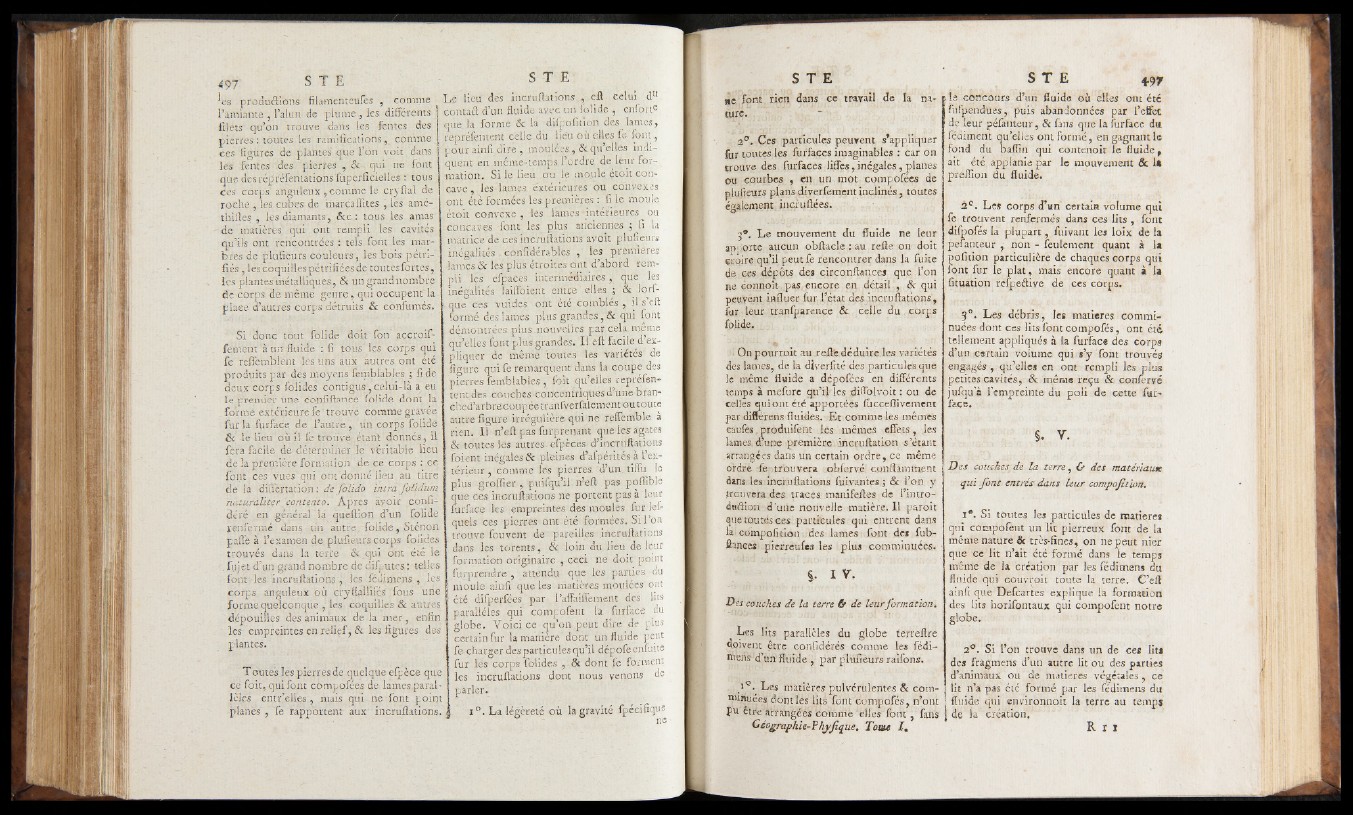 497 STE STE
les productions filamenteuſes , comme
l'amiante , l'alun de plume , les différents
filets qu'on trouve dans les fentes des
pierres : toutes les ramifications , comme
ces figures de plantes que l'on voit dans
les fentes des pierres , & qui ne ſont
que des repréſentations ſuperficielles : tous
ces corps anguleux , comme le cryſtal de
roche , les cubes de marcaſſites , les amé-
thiſtes , les diamants , &c : tous les amas
de matières qui ont rempli les cavités
qu'ils ont rencontrées : tels ſont les mar-
bres de pluſieurs couleurs, les bois pétri-
fiés , les coquilles pétrifiées de toutes ſortes,
les plantes métalliques, & un grand nombre
de corps de même genre , qui occupent la
place d'autres corps détruits & conſumés.
Si donc tout ſolide doit ſon accroiſ-
ſement à un fluide : ſi tous les corps qui
ſe reſſemblent les uns aux autres ont été
produits par des moyens ſemblables ; ſi de
deux corps ſolides contigus , celui-là a eu
le premier une conſiſtance ſolide dont la
forme extérieure ſe trouve comme gravée
ſur la ſurface de l'autre , un corps ſolide
& le lieu où il ſe trouve étant donnés, il
ſera facile de déterminer le véritable lieu
de la première formation de ce corps : ce
ſont ces vues qui ont donné lieu au titre
de ſa diſſertation : de ſolido intra ſolidum
naturaliter contento. Après avoir conſi-
déré en général la queſtion d'un ſolide
renfermé dans un autre ſolide, Sténon
paſſe à l'examen de pluſieurs corps ſolides
trouvés dans la terre & qui ont été le
ſujet d'un grand nombre de diſputes : telles
ſont les incruſtations , les ſédimens , les
corps anguleux où cryſtalliſés ſous une
forme quelconque , les coquilles & autres
dépouilles des animaux de la mer, enfin
les empreintes en relief, & les figures des
plantes.
Toutes les pierres de quelque eſpèce que
ce ſoit, qui ſont compoſées de lames paral-
lèles entr'elles , mais qui ne ſont point
planes , ſe rapportent aux incruſtations.
Le lieu des incruſtations , eſt celui du
contact d'un fluide avec un ſolide , enſorte
que la forme & la diſpoſition des lames,
repréſentent celle du lieu où elles ſe ſont,
pour ainſi dire , moulées , & qu'elles indi-
quent en même-temps l'ordre de leur for-
mation. Si le lieu ou le moule étoit con-
cave , les lames extérieures ou convexes
ont été formées les premières : ſi le moule
étoit convexe , les lames intérieures ou
concaves ſont les plus anciennes ; ſi la
matrice de ces incruſtations avoit pluſieurs
inégalités conſidérables , les premières
lames & les plus étroites ont d'abord rem-
pli les eſpaces intermédiaires , que les
inégalités laiſſoient entre elles ; & lorſ-
que ces vuides ont été comblés , il s'eſt
formé des lames plus grandes, & qui ſont
démontrées plus nouvelles par cela même
qu'elles ſont plus grandes. Il eſt facile d'ex-
pliquer de même toutes les variétés de
figure qui ſe remarquent dans la coupe des
pierres ſemblables , ſoit qu'elles repréſen-
tent des couches concentriques d'une bran-
che d'arbre coupée tranſverſalement ou toute
autre figure irrégulière qui ne reſſemble à
rien. Il n'eſt pas ſurprenant que les agates
& toutes les autres eſpèces d'incruſtations
ſoient inégales & pleines d'aſpérités à l'ex-
térieur , comme les pierres d'un tiſſu le
plus groſſier , puiſqu'il n'eſt pas poſſible
que ces incruſtations ne portent pas à leur
ſurface les empreintes des moules ſur leſ-
quels ces pierres ont été formées. Si l'on
trouve ſouvent de pareilles incruſtations
dans les torents, & loin du lieu de leur
formation originaire , ceci ne doit point
ſurprendre , attendu que les parties du
moule ainſi que les matières moulées ont
été diſperſées par l'affaiſſement des lits
parallèles qui compoſent la ſurface du
globe. Voici ce qu'on peut dire de plus
certain ſur la manière dont un fluide peut
ſe charger des particules qu'il dépoſe enſuite
ſur les corps ſolides , & dont ſe forment
les incruſtations dont nous venons de
parler.
1°. La légèreté où la gravité ſpécifique
ne
STE STE 497
ne ſont rien dans ce travail de la na-
ture.
2°. Ces particules peuvent s'appliquer
ſur toutes les ſurfaces imaginables : car on
trouve des ſurfaces liſſes, inégales, planes
ou courbes , en un mot compoſées de
pluſieurs plans diverſement inclinés , toutes
également incruſtées.
3°. Le mouvement du fluide ne leur
apporte aucun obſtacle : au reſte on doit
croire qu'il peut ſe rencontrer dans la ſuite
de ces dépôts des circonſtances que l'on
ne connoît pas encore en détail , & qui
peuvent influer ſur l'état des incruſtations,
ſur leur tranſparence & celle du corps
ſolide.
On pourroit au reſte déduire les variétés
des lames, de la diverſité des particules que
le même fluide a dépoſées en différents
temps à meſure qu'il les diſſolvoit : ou de
celles qui ont été apportées ſucceſſivement
par différens fluides. Et comme les mêmes
cauſes produiſent les mêmes effets, les
lames d'une première incruſtation s'étant
arrangées dans un certain ordre, ce même
ordre ſe trouvera obſervé conſtamment
dans les incruſtations ſuivantes ; & l'on y
trouvera des traces manifeſtes de l'intro-
duction d'une nouvelle matière. Il paroît
que toutes ces particules qui entrent dans
la compoſition des lames ſont des ſub-
ſtances pierreuſes les plus comminuées.
§. IV.
Des couches de la terre & de leur formation.
Les lits parallèles du globe terreſtre
doivent être conſidérés comme les ſédi-
mens d'un fluide , par pluſieurs raiſons.
1°. Les matières pulvérulentes & com-
minuées dont les lits ſont compoſés, n'ont
pu être arrangées comme elles ſont, ſans
Géographie-Phyſique. Tome I.
le concours d'un fluide où elles ont été
ſuſpendues, puis abandonnées par l'effet
de leur péſanteur, & ſans que la ſurface du
ſédiment qu'elles ont formé, en gagnant le
fond du baſſin qui contenoît le fluide,
ait été applanie par le mouvement & la
preſſion du fluide.
2°. Les corps d'un certain volume qui
ſe trouvent renfermés dans ces lits , ſont
diſpoſés la plupart , ſuivant les loix de la
peſanteur , non - ſeulement quant à la
poſition particulière de chaques corps qui
ſont ſur le plat, mais encore quant à la
ſituation reſpective de ces corps.
3°. Les débris, les matieres commi-
nuées dont ces lits ſont compoſés, ont été
tellement appliqués à la ſurface des corps
d'un certain volume qui s'y ſont trouvés
engagés , qu'elles en ont rempli les plus
petites cavités, & même reçu & conſervé
juſqu'à l'empreinte du poli de cette ſur-
face.
§. V.
Des couches de la terre, & des matériaux
qui ſont entrés dans leur compoſition.
1°. Si toutes les particules de matieres
qui compoſent un lit pierreux ſont de la
même nature & très-fines, on ne peut nier
que ce lit n'ait été formé dans le temps
même de la création par les ſédimens du
fluide qui couvroit toute la terre. C'eſt
ainſi que Deſcartes explique la formation
des lits horiſontaux qui compoſent notre
globe.
2°. Si l'on trouve dans un de ces lits
des fragmens d'un autre lit ou des parties
d'animaux ou de matieres végétales , ce
lit n'a pas été formé par les ſédimens du
fluide qui environnoit la terre au temps
de la création.
Rrr